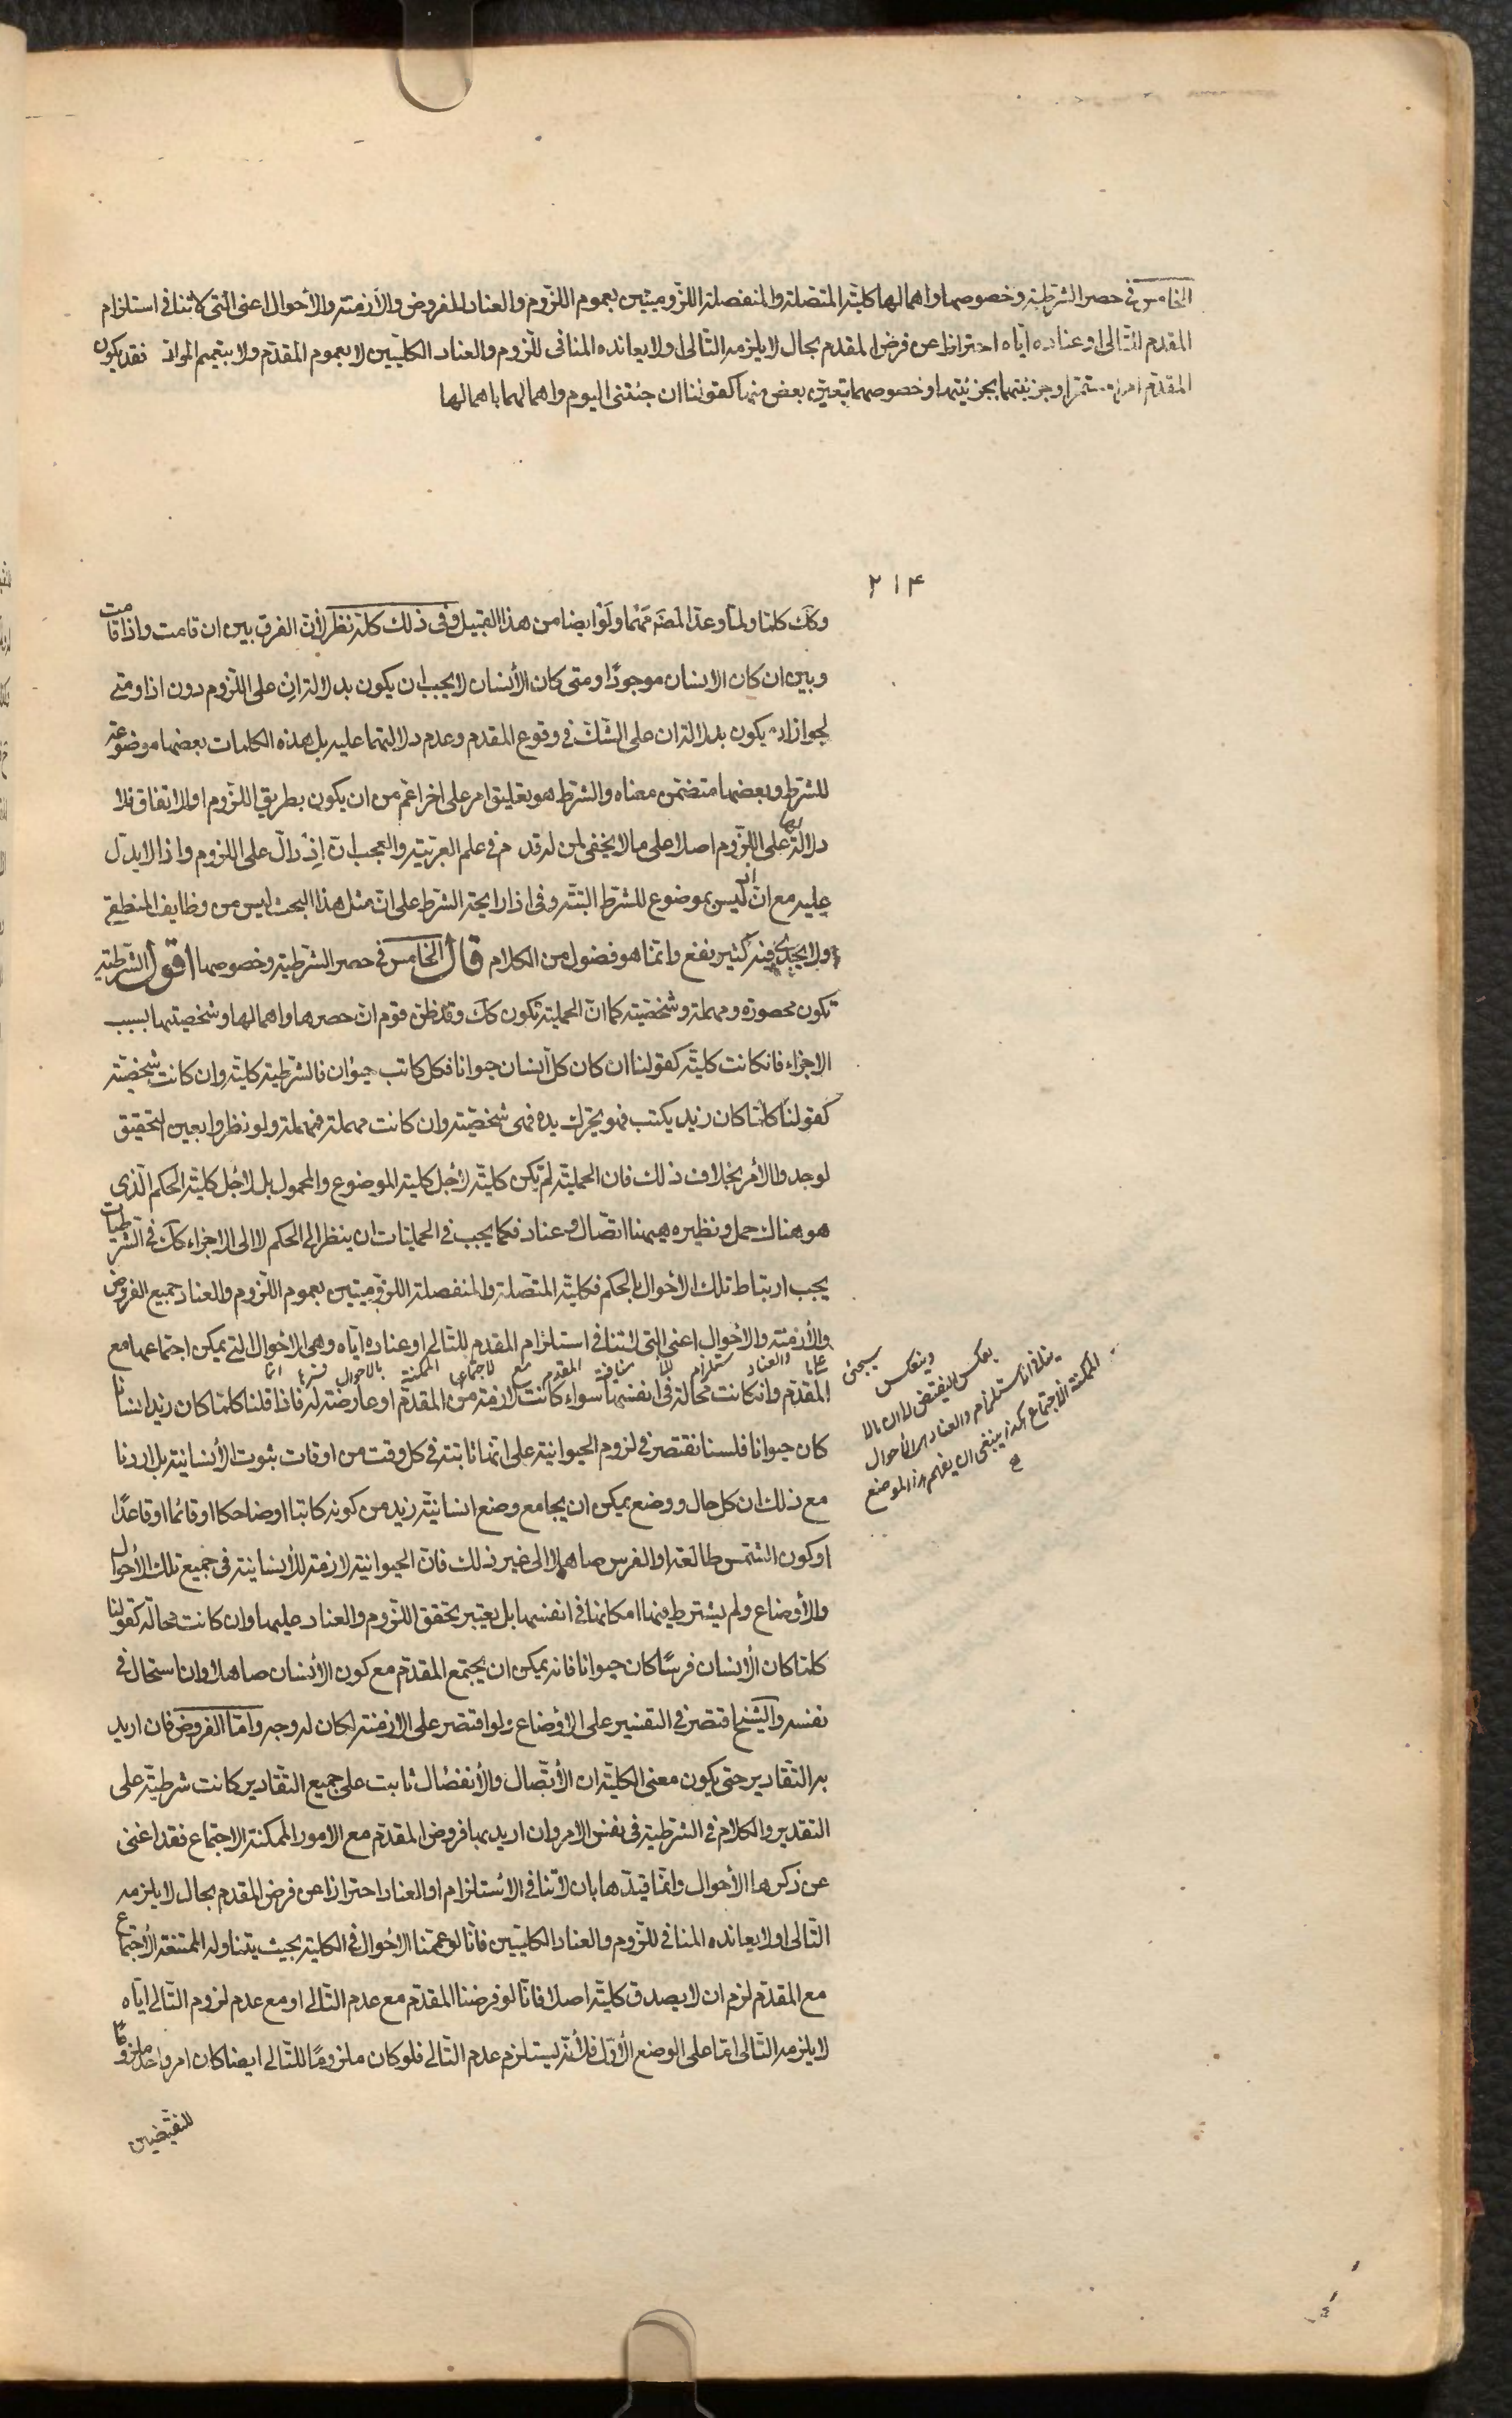 الخامس في حصر الشرطية وخصوصها واهمالها كلية المتصلة والمنفصلة اللزوميتين بعموم اللزوم والعناد للفروض والأزمنة والأحوال اعنى التى لا تنافى استلزام
المقدم للتالى او عناده اياه احترازا عن فرض المقدم بحال لا يلزمه التالى او لا يعانده المنافى للزوم والعناد الكليتين لا بعموم المقدم ولا بتعميم المواد فقد يكون
المقدم امرا مستمرا وجزئيتهما بجزئيتها وخصوصهما بتعين بعض منها كقولنا ان جئتنى اليوم واهمالهما باهمالها
٢١٤
وكك كلما ولما وعد المصنف مهما ولو ايضا من هذا القبيل وفى ذلك كله نظر لأن الفرق بين ان قامت واذا قامت
وبين ان كان الانسان موجودا ومتى كان الأنسان لا يجب ان يكون بدلالة ان على اللزوم دون اذا ومتى
لجواز ان يكون بدلالة ان على الشك فى وقوع المقدم وعدم دلالتهما عليه بل هذه الكلمات بعضها موضوعة
للشرط وبعضها متضمن معناه والشرط هو تعليق امر على اخر اعم من ان يكون بطريق اللزوم او الاتفاق فلا
دلالة لها على اللزوم اصلا على ما لا يخفى لمن له قدم فى علم العربية والعجب ان اذ دال على اللزوم واذا لا يدل
عليه مع ان اذ ليس بموضوع للشرط البتة وفى اذا رايحة الشرط على ان مثل هذا البحث ليس من وظايف المنطقى
ولا يجدى فيه كثير نفع وانما هو فضول من الكلام قال الخامس فى حصر الشرطية وخصوصها اقول الشرطية
تكون محصورة ومهملة وشخصية كما ان الحملية تكون كك وقد ظن قوم ان حصرها واهمالها وشخصيتها بسبب
الاجزاء فان كانت كلية كقولنا ان كان كل انسان حيوانا فكل كاتب حيوان فالشرطية كلية وان كانت شخصية
كقولنا كلما كان زيد يكتب فهو يحرك يده فهى شخصية وان كانت مهملة فمهملة ولو نظروا بعين التحقيق
لوجدوا الأمر بخلاف ذلك فان الحملية لم تكن كلية لأجل كلية الموضوع والمحمول بل لأجل كلية الحكم الذى
هو هناك حمل ونظيره ههنا اتصال وعناد فكما يجب فى الحمليات ان ينظر الى الحكم لا الى الاجزاء كك فى الشرطيات
يجب ارتباط تلك الأحوال بالحكم فكلية المتصلة والمنفصلة اللزوميتين بعموم اللزوم والعناد جميع الفروض
والأزمنة والأحوال اعنى التى لا تنافى استلزام المقدم للتالى او عناده اياه وهى الأحوال التى يمكن اجتماعها مع
انما فسرنا بالاحوال الممكنة الاجتماع مع المقدم منافية استلزام والعناد
المقدم وان كانت محالة فى انفسها سواء كانت لازمة من المقدم او عارضة له فاذا قلنا كلما كان زيد انسانا
كان حيوانا فلسنا نقتصر فى لزوم الحيوانية على انها ثابتة فى كل وقت من اوقات ثبوت الأنسانية بل اردنا
مع ذلك ان كل حال ووضع يمكن ان يجامع وضع انسانية زيد من كونه كاتبا او ضاحكا او قائما او قاعدا
او كون الشمس طالعة او الفرس صاهلا الى غير ذلك فان الحيوانية لازمة للأنسانية فى جميع تلك الأحوال
والأوضاع ولم يشترط فيها امكانها فى انفسها بل يعتبر تحقق اللزوم والعناد عليها وان كانت محالة كقولنا
كلما كان الأنسان فرسا كان حيوانا فانه يمكن ان يجتمع المقدم مع كون الأنسان صاهلا وان استحال فى
نفسه والشيخ اقتصر فى التفسير على الأوضاع ولو اقتصر على الازمنة لكان له وجه واما الفروض فان اريد
به التقادير حتى يكون معنى الكلية ان الأتصال والأنفصال ثابت على جميع التقادير كانت شرطية على
التقدير والكلام فى الشرطية فى نفس الامر وان اريد بها فروض المقدم مع الامور الممكنة الاجتماع فقد اغنى
عن ذكرها الأحوال وانما قيدها بان لا تنافى الأستلزام او العناد احترازا عن فرض المقدم بحال لا يلزمه
التالى او لا يعانده المنافى للزوم والعناد الكليتين فانا لو عممنا الأحوال فى الكلية بحيث يتناوله الممتنعة الأجتماع
مع المقدم لزم ان لا يصدق كلية اصلا فانا لو فرضنا المقدم مع عدم التالى او مع عدم لزوم التالى اياه
لا يلزمه التالى اما على الوضع الأول فلأنه يستلزم عدم التالى فلو كان ملزوما للتالى ايضا كان امر واحد ملزوما
للنقيضين
سيجئ وينعكس
بعكس النقيض الى ان ما لا
ينافى استلزام والعناد هى الأحوال
الممكنة الأجتماع هكذا ينبغى ان يفهم هذا الموضع